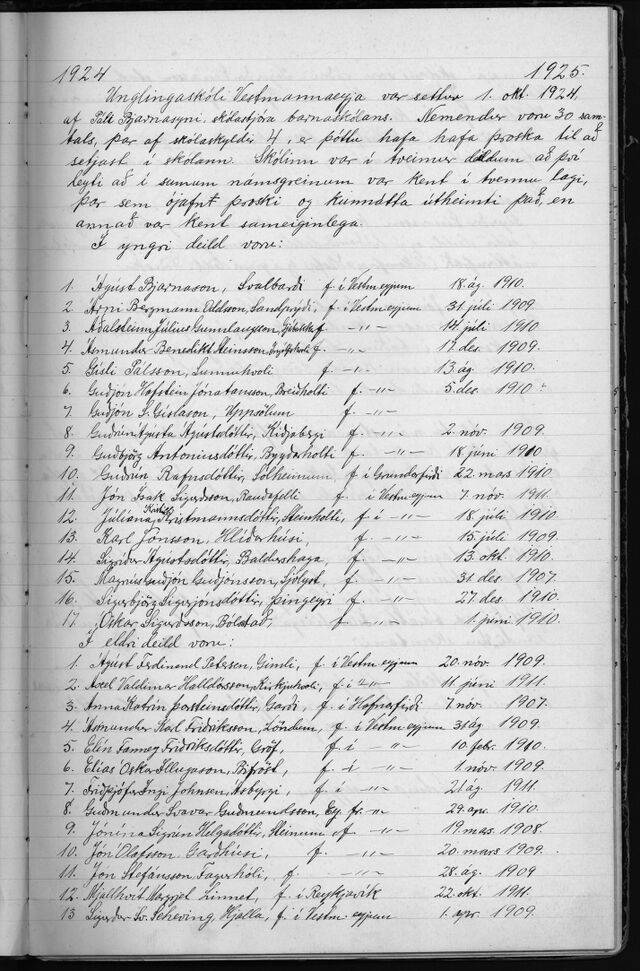 1924 1925.
Unglingaskóli Vestmannaeyja var settur 1. okt. 1924,
af Páli Bjarnasyni, skólastjóra barnaskólans. Nemendur voru 30 sam-
tals, þar af skólaskyldir 4, er þóttu hafa hafa þroska til að
setjast í skólann. Skólinn var í tveimur deildum að því
leyti að í sumum námsgreinum var kent í tvennu lagi,
þar sem ójafnt þroski og kunnátta útheimti það, en
annað var kent sameiginlega.
Í yngri deild voru:
1. Ágúst Bjarnason, Svalbarði f. í Vestm eyjum 18. ág. 1910.
2. Árni Bergmann Oddsson, Sandprýði, f. í Vestm eyjum 31. júlí 1909.
3. Aðalsteinn Júlíus Gunnlaugsson, f. -"- 14. júlí 1910
4. Ásmundur Benedikt Steinsson, f. -"- 17 des. 1909.
5. Gísli Pálsson, Sunnuhvoli f. -"- 13. ág. 1910.
6. Guðjón Hafstein Jónatansson, Breiðholti f. -"- 5. des. 1910
7. Guðjón S. Gíslason, Uppsölum f. -"-
8. Guðrún Ágústa Ágústsdóttir, Kiðjabergi f. -"- 2. nóv. 1909.
9. Guðbjörg Antoniusdóttir, Byggðarholti f. -"- 18. júní 1910
10. Guðrún Rafnsdóttir, Sólheimum, f. í Grundarfirði 22. mars 1910.
11. Jón Ísak Sigurðsson, Rauðafelli f. í Vestm eyjum 7. nóv. 1911.
12. Júlíana Kristín Kristmannsdóttir, Steinholti, f. í -"- 18. júlí 1910.
13. Karl Jónsson, Hlíðarhúsi, f. -"- 15. júlí 1909.
14. Sigríður Ágústsdóttir, Baldurshaga, f. -"- 13. okt. 1910.
15. Magnús Guðjón Guðjónsson, Sjólyst, f. -"- 31. des. 1907.
16. Sigurbjörg Sigurjónsdóttir, Þingeyri f. -"- 27. des. 1910.
17. Óskar Sigurðsson, Bólstað, f. -"- 1. júní 1910.
Í eldri deild voru:
1. Ágúst Ferdinand Petersen, Gimli, f. í Vestm. eyjum 20. nóv. 1909.
2. Axel Valdimar Halldórsson, Kirkjuhvoli, f. í -"- 11. júní 1911.
3. Anna Katrín Þorsteinsdóttir, Garði, f. í Hafnarfirði 7. nóv. 1907.
4. Ásmundur Karl Friðriksson, Löndum, f. í Vestm. eyjum 31. ág. 1909.
5. Elín Fanney Friðriksdóttir, Gröf, f. í -"- 10. febr. 1910.
6. Elías Óskar Illugason, Bifröst, f. í -"- 1. nóv. 1909.
7. Friðþjófur Ingi Johnsen, Ásbyrgi, f. -"- 21. ág. 1911.
8. Guðmundur Svavar Guðmundsson, f. -"- 29. apr. 1910.
9. Jónína Sigrún Helgadóttir, Steinum, f. -"- 19. mars. 1908.
10. Jón Ólafsson, Garðhúsi, f. -"- 20. mars 1909.
11. Jón Stefánsson, Fagurhóli, f. -"- 28. ág. 1909
12. Mjallhvít Margrjet Linnet, f. í Reykjavík 22. okt. 1911.
13 Sigurður Sv. Scheving, Hjalla, f. í Vestm. eyjum 1. apr. 1909.